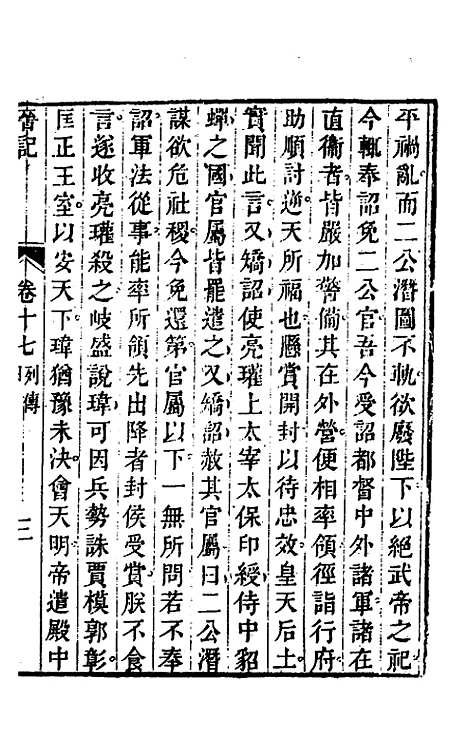 平禍亂而二公潛圖不軌欲廢陛下以絕武帝之祀
今輒奉詔免二公官吾今受詔都督中外諸軍諸在
直衞者皆嚴加警備其在外營便相率領徑詣行府
助順討逆天所福也懸賞開封以待忠效皇天后土
實聞此言又矯詔使亮瓘上太宰太保印綬侍中貂
蟬之國官屬皆罷遣之又矯詔赦其官屬曰二公潛
謀欲危社稷今免還第官屬以下一無所問若不奉
詔軍法從事能率所領先出降者封侯受賞朕不食
言遂收亮瓘殺之岐盛說瑋可因兵勢誅賈模郭彰
匡正王室以安天下瑋猶豫未決會天明帝遣殿中
晉記 卷十七 列傳 三